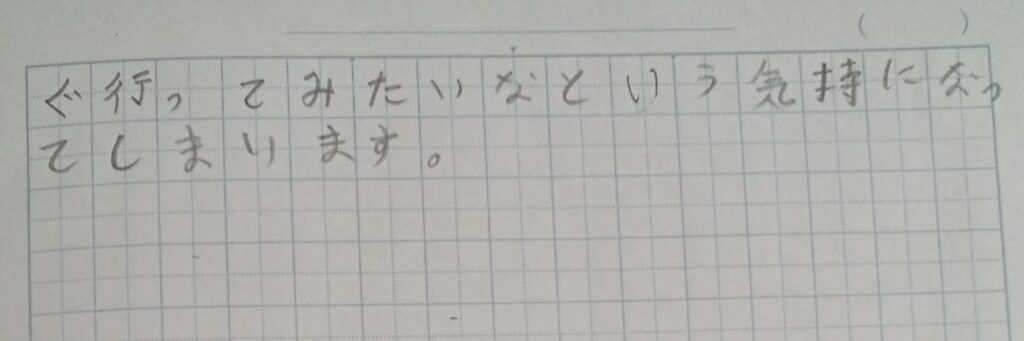 (        )
ぐ行ってみたいなという気持になっ
てしまいます。